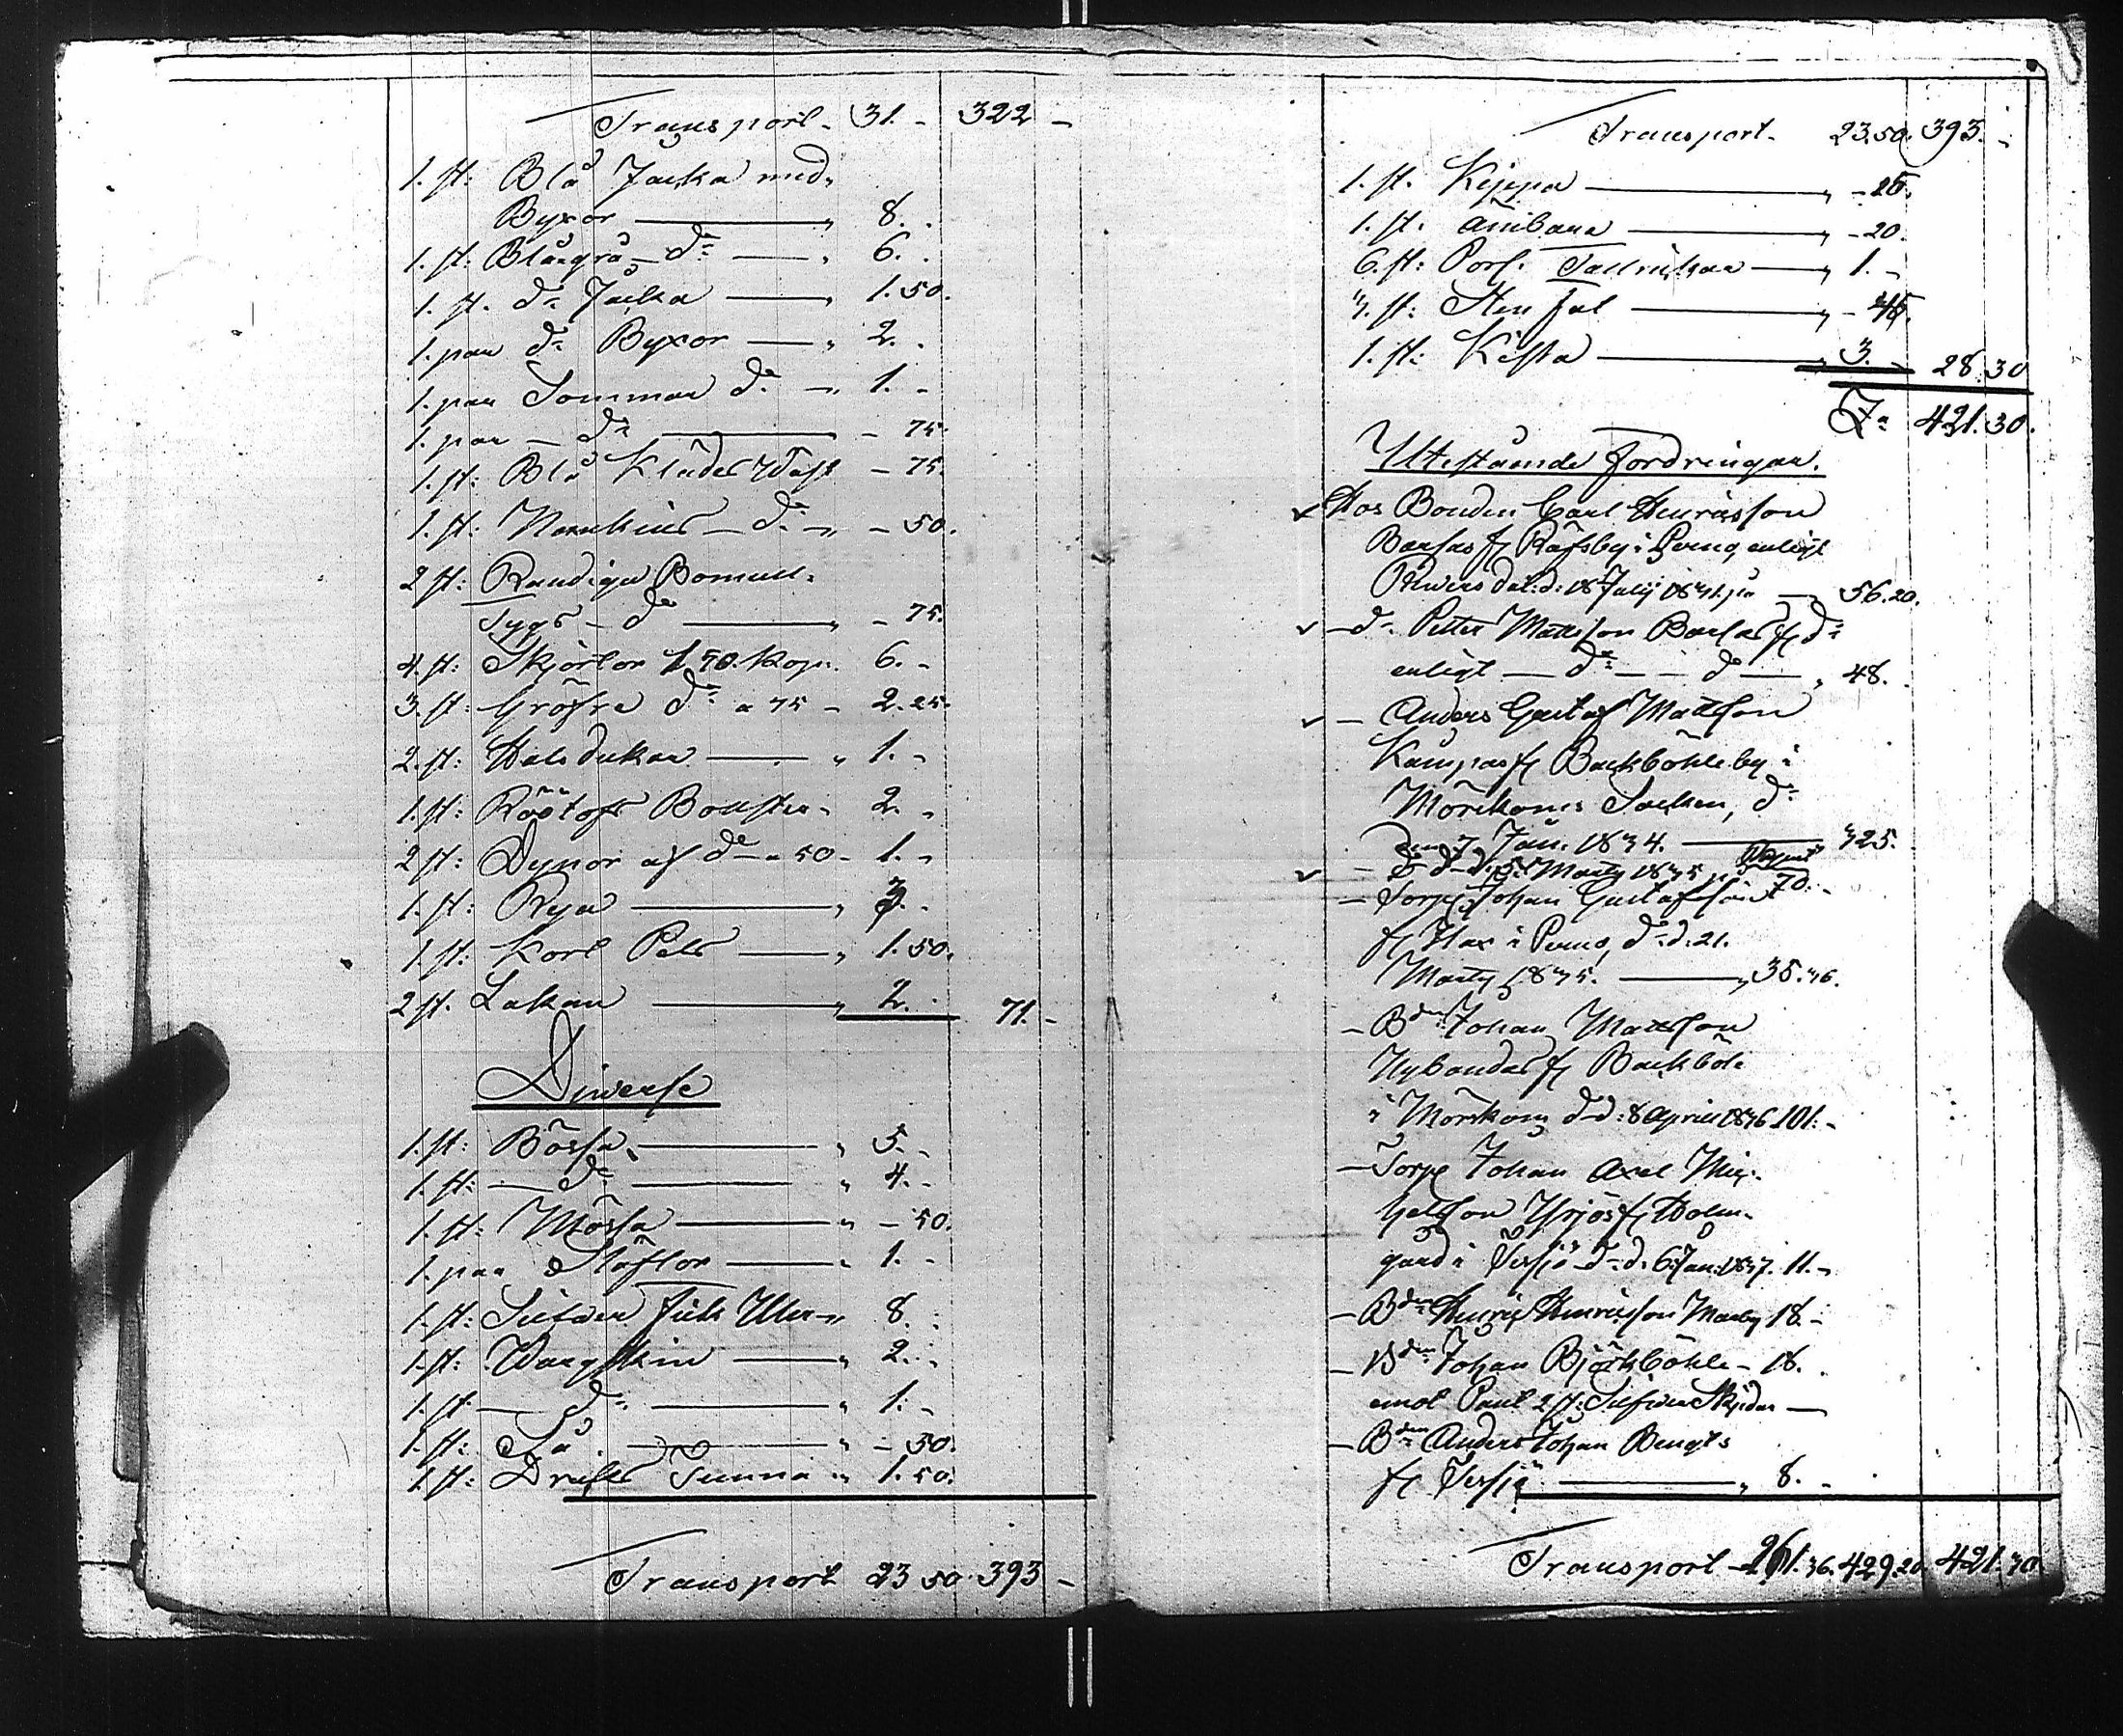 Transport - 31. - 322 -
1. st: Blå Jacka med
Byxor — " 8. -
1. st: Blågrå - do — " 6. -
1. st. do Jacka — " 1.50.
1. par do Byxor — " 2. -
1. par Sommar do — " 1. -
1. par — do — " - 75.
1. st: Blå Klädes Wäst - 75.
1. st: Nankins - do - " - 50.
2 st: Randiga Bomull-
Tygs - do — " - 75.
4. st: Skjortor 1.50. Kop. 6. -
3. st: Gröfre do a 75 - 2.25.
2. st: Halsdukar — " 1. -
1. st: Bolster - 2. -
2 st: Dynor af do a 50 - 1. -
1. st: Rya — " 3. -
1. st: Kort Pels — " 1.50.
2 st. Lakan — " 2. - 71. -
Diverse
1. st: Bössa — " 5. -
1. st: — do — " 4. -
1. st: Mössa — " - 50.
1. par Stöflor — " 1. -
1. st: Silfwer Fick Uhr - " 8. -
1. st: Wargskin — " 2. -
1. st: — do — " 1. -
1. st: Så — " - 50.
1. st: Tunna " 1.50.
Transport 23 50. 393 -
Transport - 23.50. 393. -
1. st. Kippa — " - 15.
1. st. — " - 20.
6. st: Porsl. Tallrickar — " 1. -
3. st: Sten fat — " - 45.
1. st: Kista — " 3. - 28.30
Sa 421.30.
Utestående fordringar.
Hos Bonden Carl Henricsson
Barfas fr Räfsby i Perno, enligt
Rewers dat: d: 18 July 1831. på — 56.20.
- do Petter Mattsson Barfas fr do
enligt — do — - do — " 48. -
- Anders Gustaf Mattsson
Kampas fr Backböhle by i
Mörskoms Socken, do
den 7 Jan. 1834. — 325.
- do do d. 5. Marty 1835 på 70. -
- Torp. Johan Gustafsson
fr Hax i Perno, do d. 21.
Marty 1835. — " 35.36.
- Bden Johan Mattsson
Nybondas fr Backböle
i Mörskom do d: 8 April 1836 101. -
- Torp Johan Axel Mic-
helsson Yrjös fr Holm-
gård i do d. 6 Jan. 1837. 11. -
- Bden Henric Henricsson Marby 18. -
- Bden Johan Björkböhle - 16. -
emot Pant 2 st: Silfwer Skjedar —
- Bden Anders Johan Bengts
fr — " 8. -
Transport - 261.36. 429.20. 421.30